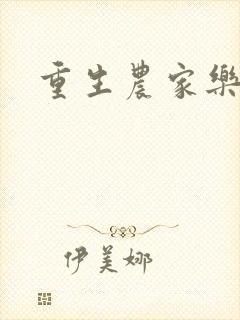 重生農家樂
伊美娜